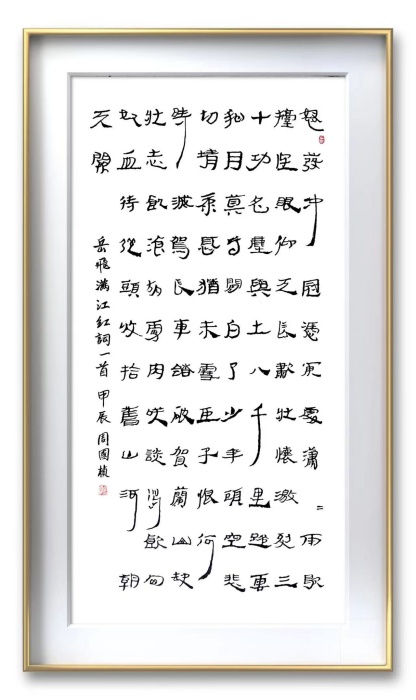 怒發冲冠憑闌處瀟〻雨歇
擡望眼仰天長歎壯懷激烈三
十功名塵與土八千里路雲
和月莫等閒白了少年頭空悲
切靖康恥猶未雪臣子恨何
時滅駕長車踏破賀蘭山缺
壯志飢湌胡虜肉笑談渴飲匈
奴血待從頭收拾舊山河朝
天闕
岳飛滿江紅詞一首 甲辰 周國楨